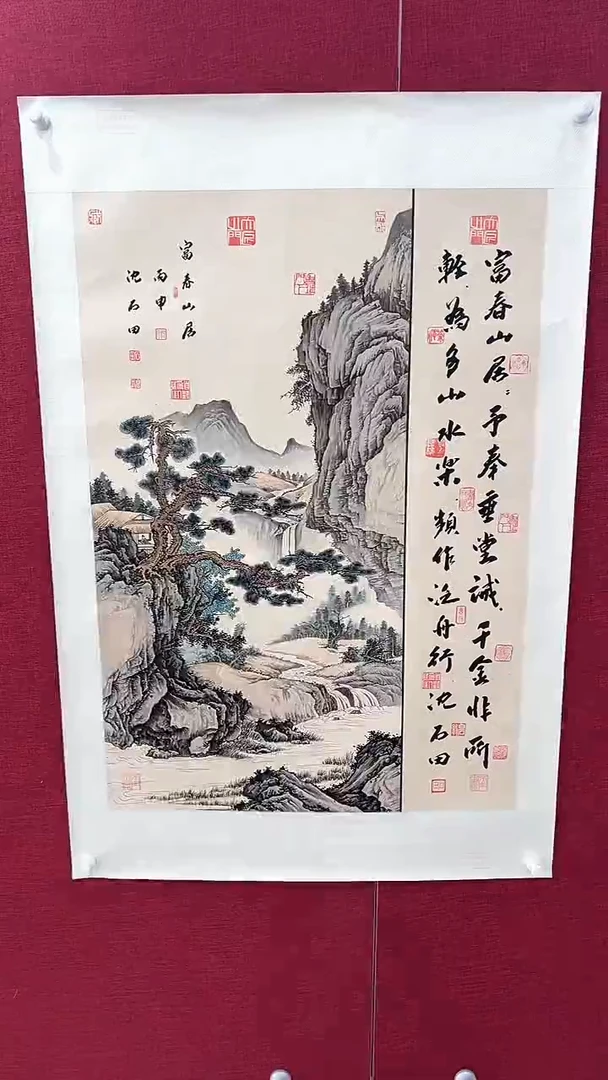 富春山居予奉垂堂誡千金非所
輕為多山水楽頻作泛舟行沈石田
富春山居
丙申
沈石田